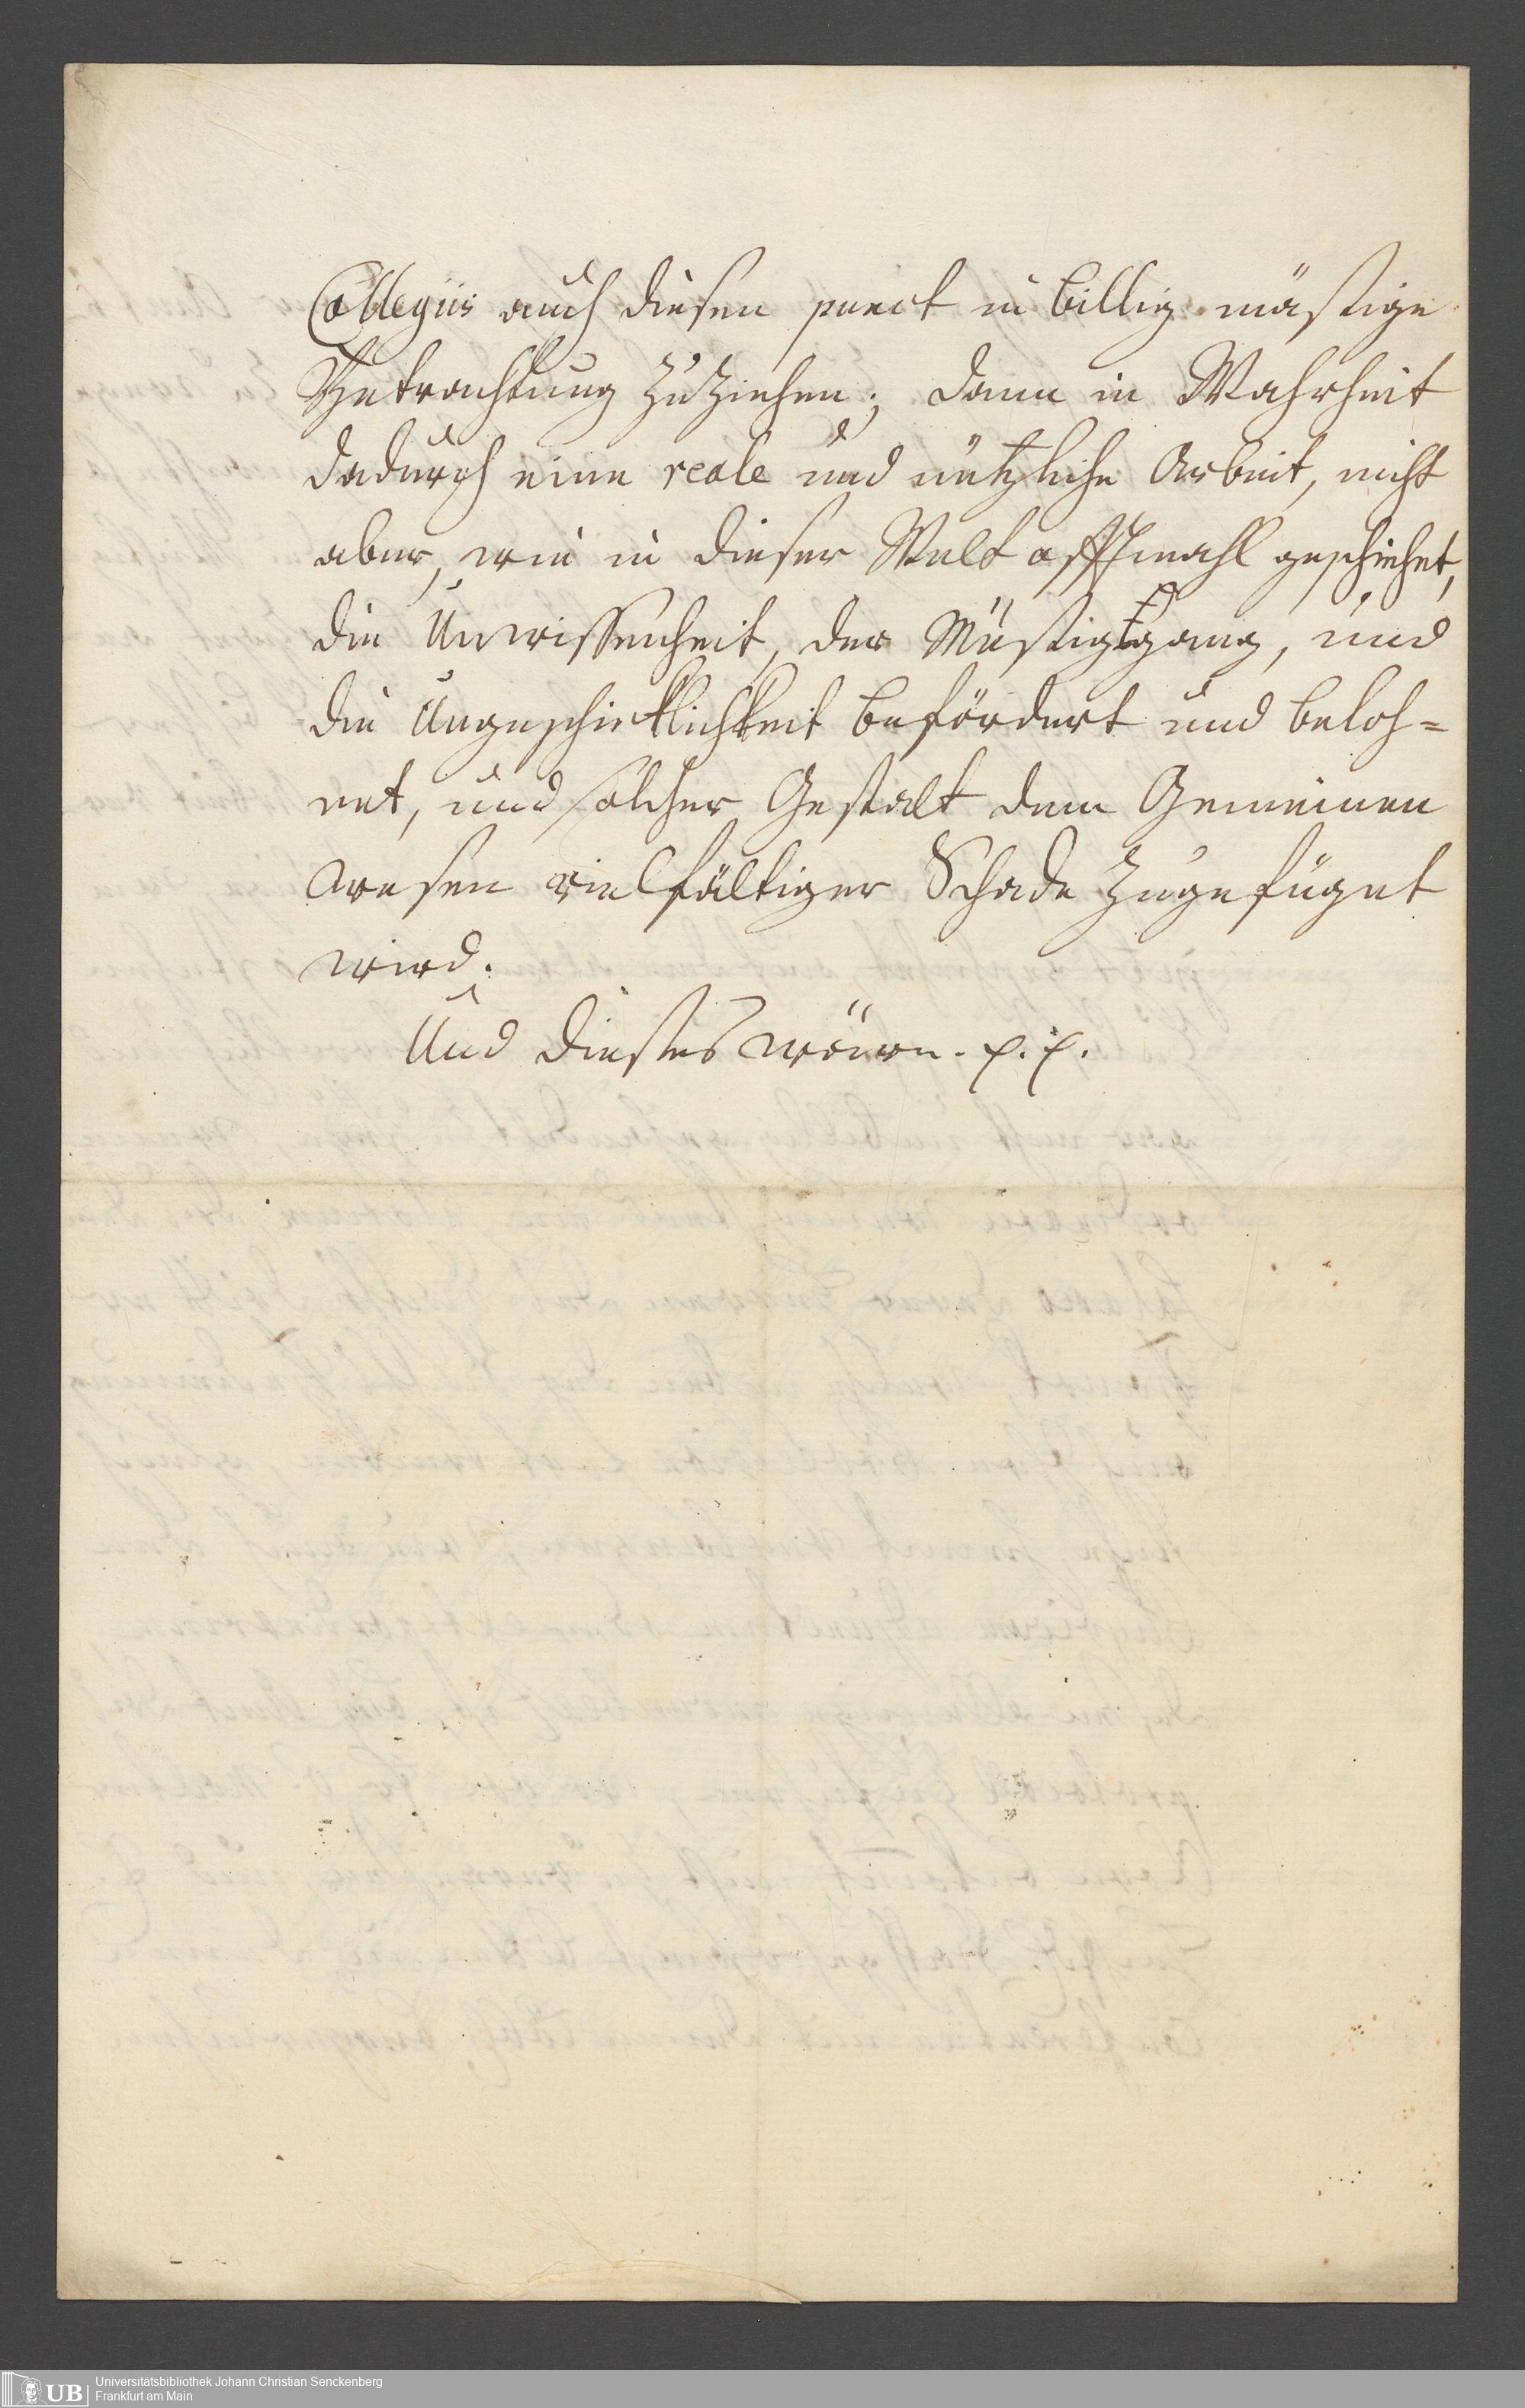 Collegiis auch diesen punct in billig mäßige
Betrachtung zu ziehen; dann in Wahrheit
dadurch eine reale und nützliche Arbeit, nicht
aber, wie in dieser Welt offtmahl geschiehet,
die Unwissenheit, der Müßiggang, und
die Ungeschicklichkeit befördert und beloh=
net, und solcher Gestalt dem Gemeinen
Wesen vielfältiger Schade zugefüget
wird.
Und dieses wären. p. p.
UB
Universitätsbibliothek Johann Christian Senckenberg
Frankfurt am Main